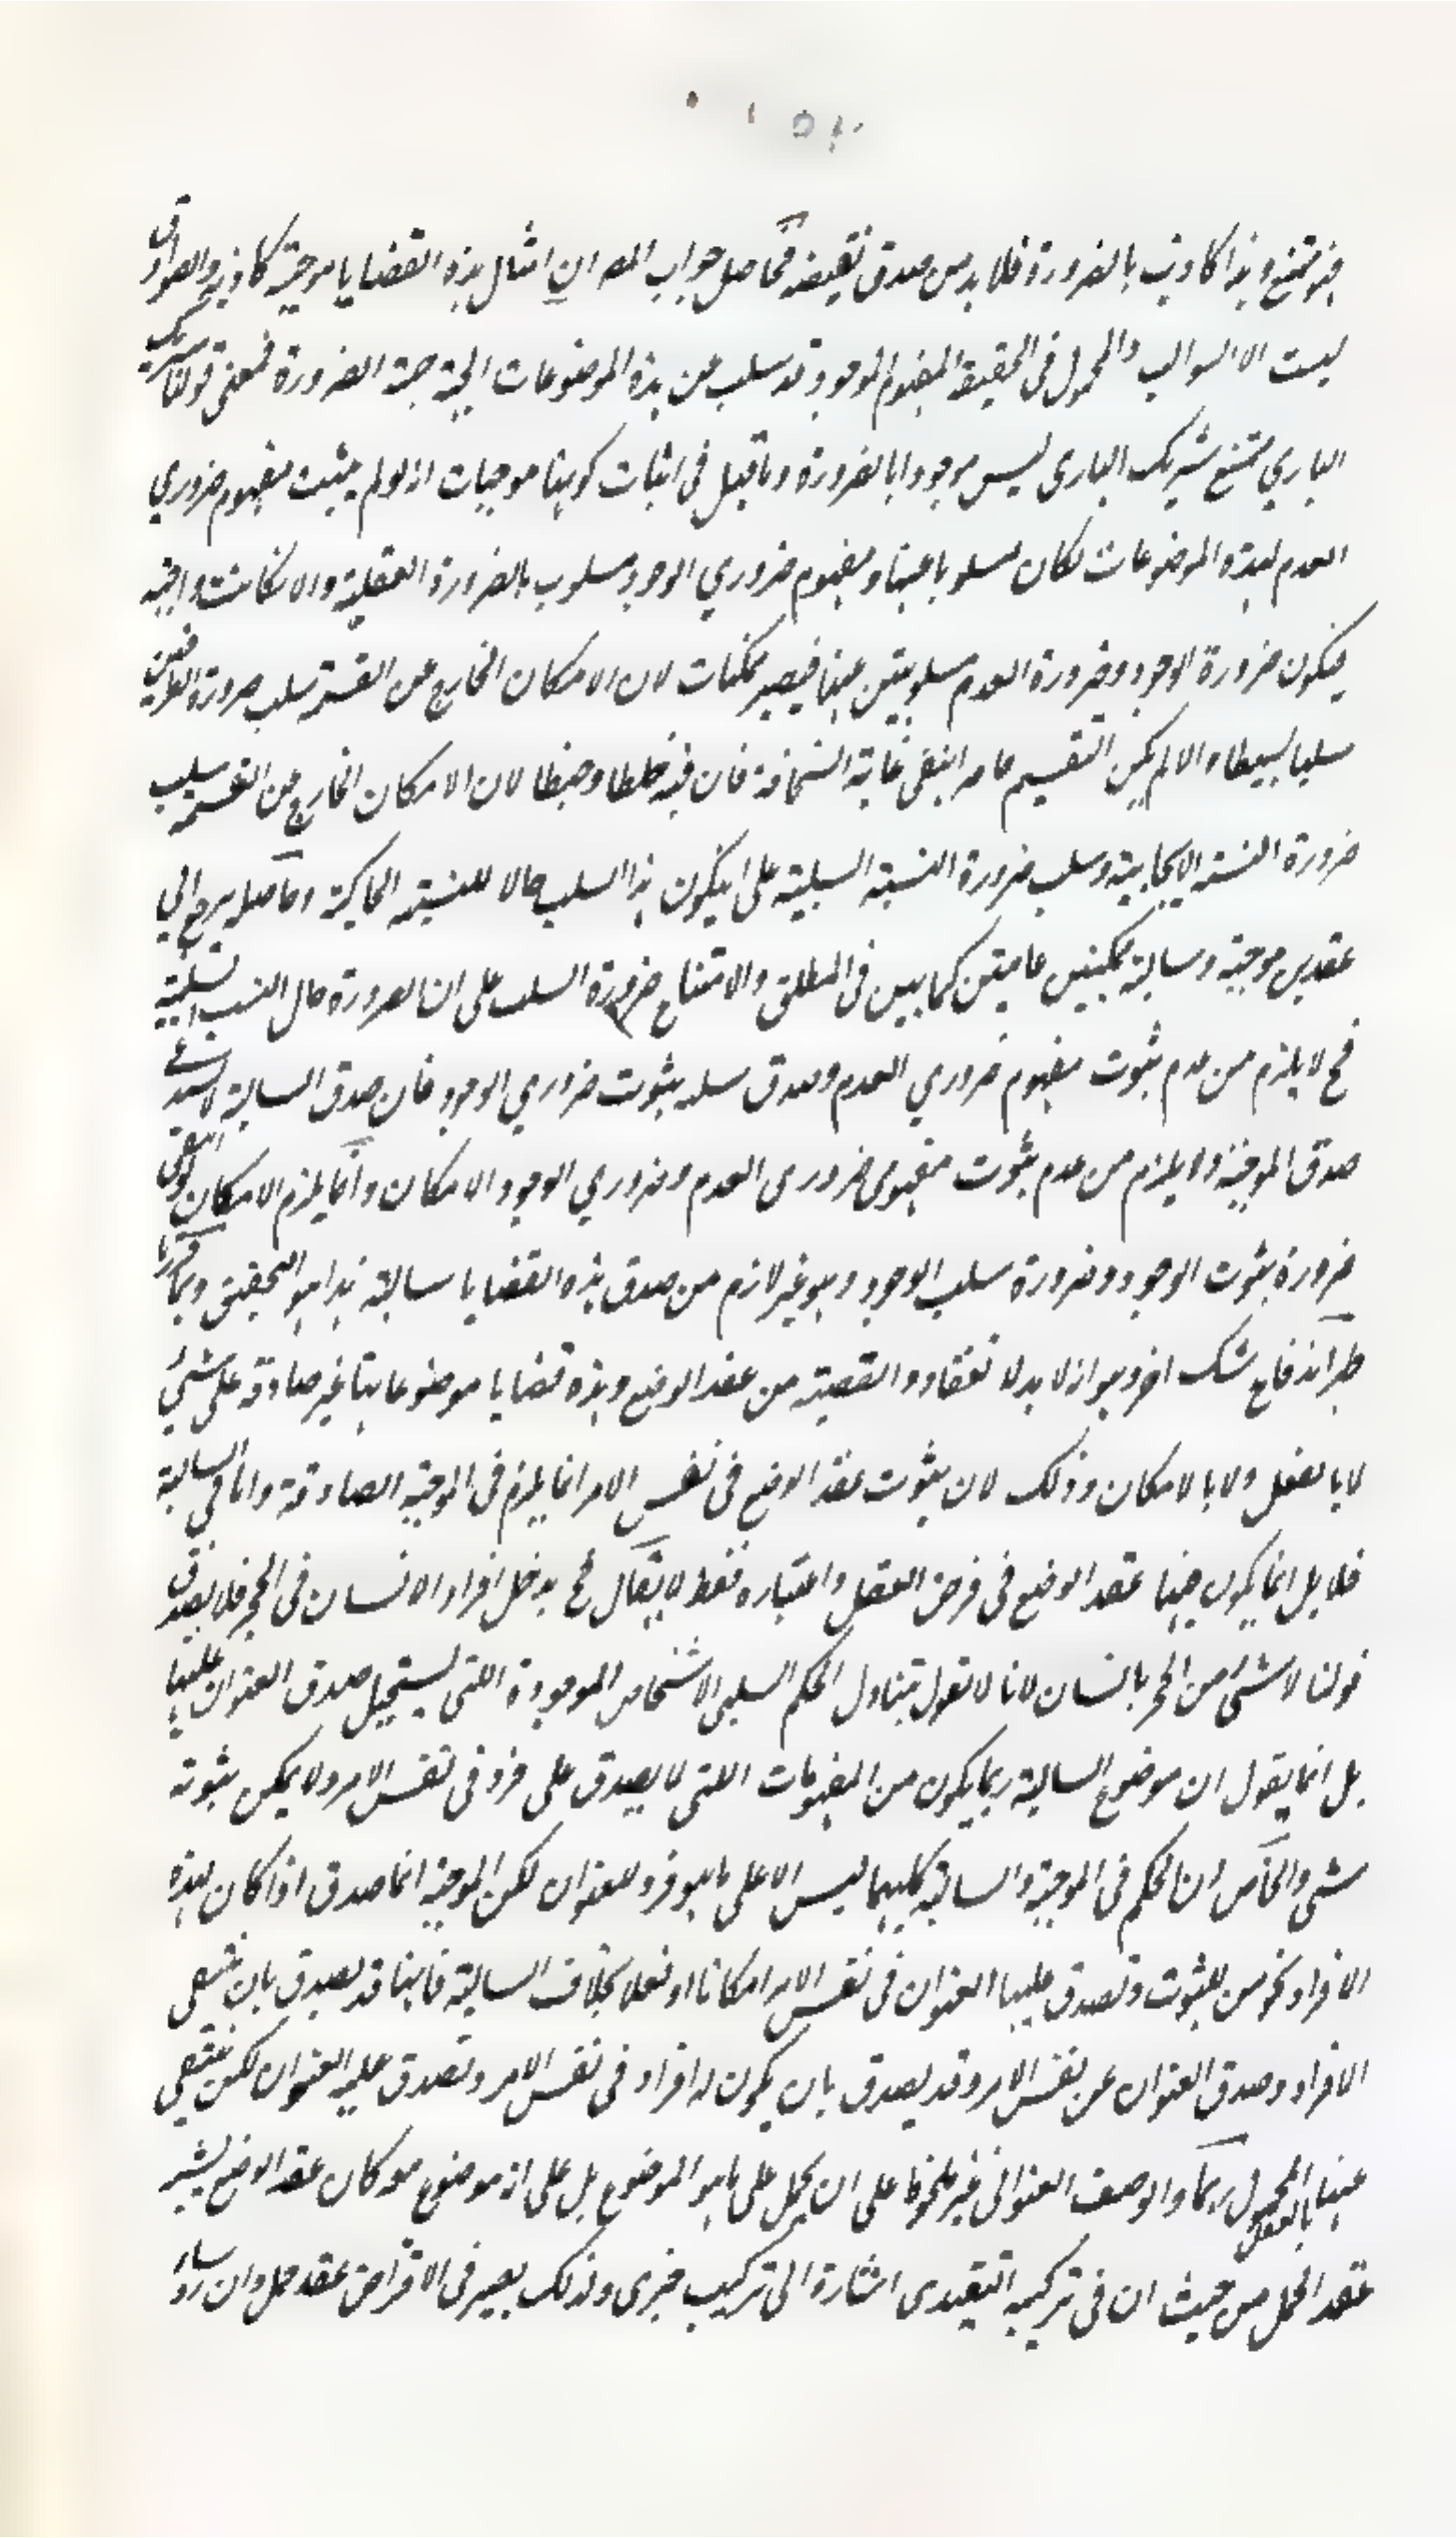 فهو ممتنع وهذا كاذب بالضرورة فلا بد من صدق نقيضه فحاصل جواب المص ان امثال هذه القضايا موجبة كاذبة والصوادق
ليست الا السوالب والمحمول في الحقيقة المفهوم الموجود قد سلب عن هذه الموضوعات الجهة جهة الضرورة فمعنى قولنا شريك
الباري ممتنع شريك الباري ليس موجودا بالضرورة وما قيل في اثبات كونها موجبات اذ لو لم يثبت مفهوم ضروري
العدم لهذه الموضوعات لكان مسلوبا عنها ومفهوم ضروري الوجود مسلوب بالضرورة العقلية والا لكانت واجبة
فيكون ضرورة الوجود وضرورة العدم مسلوبتين عنها فيصير ممكنات لان الامكان الخارج عن القسمة سلب ضرورة الطرفين
سلبا بسيطا والا لم يكن التقسيم حاصرا ففي غاية السخافة فان فيه خلطا وخبطا لان الامكان الخارج من القسمة سلب
ضرورة النسبة الايجابية وسلب ضرورة النسبة السلبية على ان يكون هذا السلب حالا للنسبة الحاكية وحاصله يرجع الى
عقدين موجبة وسالبة ممكنتين عامتين كما بين في المطلق والامتناع ضرورة السلب على ان الضرورة حال النسبة السلبية
فح لا يلزم من عدم ثبوت مفهوم ضروري العدم وصدق سلبه ثبوت ضروري الوجود فان صدق السالبة لا يستدعي
صدق الموجبة ولا يلزم من عدم ثبوت مفهومي ضروري العدم وضروري الوجود الامكان وانما يلزم الامكان لو انتفى
ضرورة ثبوت الوجود وضرورة سلب الوجود وهو غير لازم من صدق هذه القضايا سالبة هذا هو التحقيق وبما قررنا
ظهر اندفاع شك اخر وهو انه لا بد لانعقاد القضية من عقد الوضع وهذه قضايا موضوعاتها غير صادقة على شيء
لا بالفعل ولا بالامكان وذلك لان ثبوت عقد الوضع في نفس الامر انما يلزم في الموجبة الصادقة واما في السالبة
فلا بل انما يكون فيها عقد الوضع في فرض العقل واعتباره فقط لا يقال فح يدخل افراد الانسان في الحجر فلا يصدق
قولنا لا شيء من الحجر بانسان لانا لا نقول بتناول الحكم السلبي الاشخاص الموجودة اللتي يستحيل صدق العنوان عليها
بل انما يقول ان موضوع السالبة ربما يكون من المفهومات اللتي لا يصدق على فرد في نفس الامر ولا يمكن ثبوته
شيء والحاصل ان الحكم في الموجبة والسالبة كليهما ليس الا على ما هو فرد للعنوان لكن الموجبة انما صدق اذا كان لهذه
الافراد نحو من الثبوت وتصدق عليها العنوان في نفس الامر امكانا او فعلا بخلاف السالبة فانها قد يصدق بان ينتفي
الافراد وصدق العنوان عن نفس الامر وقد يصدق بان يكون له افراد في نفس الامر وتصدق عليه العنوان لكن ينتفي
عنها المحمول بالفعل ربما والوصف العنواني غير ملحوظ على ان يحمل على ما هو الموضوع بل على انه موضوع هو كان عقد الوضع يشير
عقد الحمل من حيث ان في تركيبه التقييدي اشارة الى تركيب خبري ولذلك يصير في الافتراض عقد حمل وان